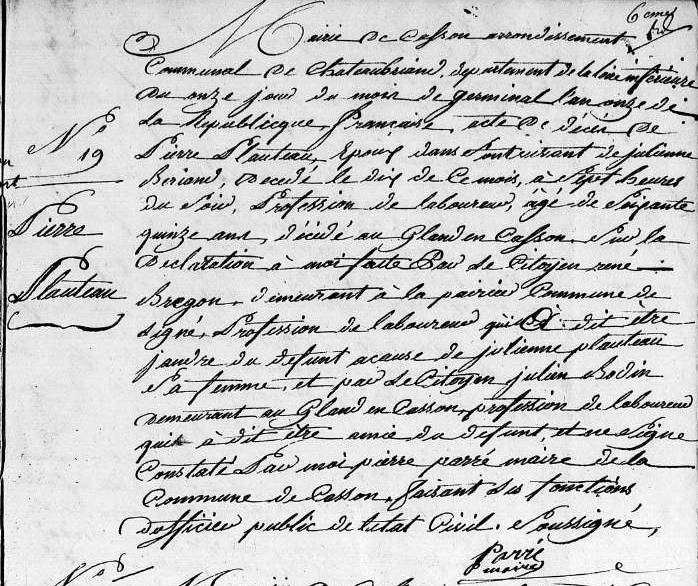 Mairie de Casson arrondissement
Communal de Chateaubriand, departement de la loire inferieure
Du onze jour du mois de germinal l'an onze de
La Republicque française, acte de décès de
N° 19
Pierre Plauteau
Pierre Plauteau, Epoux dans Sont vivant de julienne
Beriand, Decedé le dix de Ce mois, à Sept heures
du Soir, Profession de laboureur, âgé de Soixante
quinze ans, décédé au Gland en Casson, Sur la
Declaration à moi faitte Par Le Citoyen rené
Bregon, demeurant à la pairie Commune de
Ligné, Profession de laboureur qui à dit être
jandre du defunt acause de julienne plauteau
Sa femme, et par Le Citoyen julien Bodin
Demeurant au Gland en Casson, profession de laboureur
qui à dit être amie du defunt, et ne Signe
Constaté Par moi pierre parré maire de la
Commune de Casson, faisant les fonctions
d'officier public de l'etat Civil. Soussigné,
Parré
maire